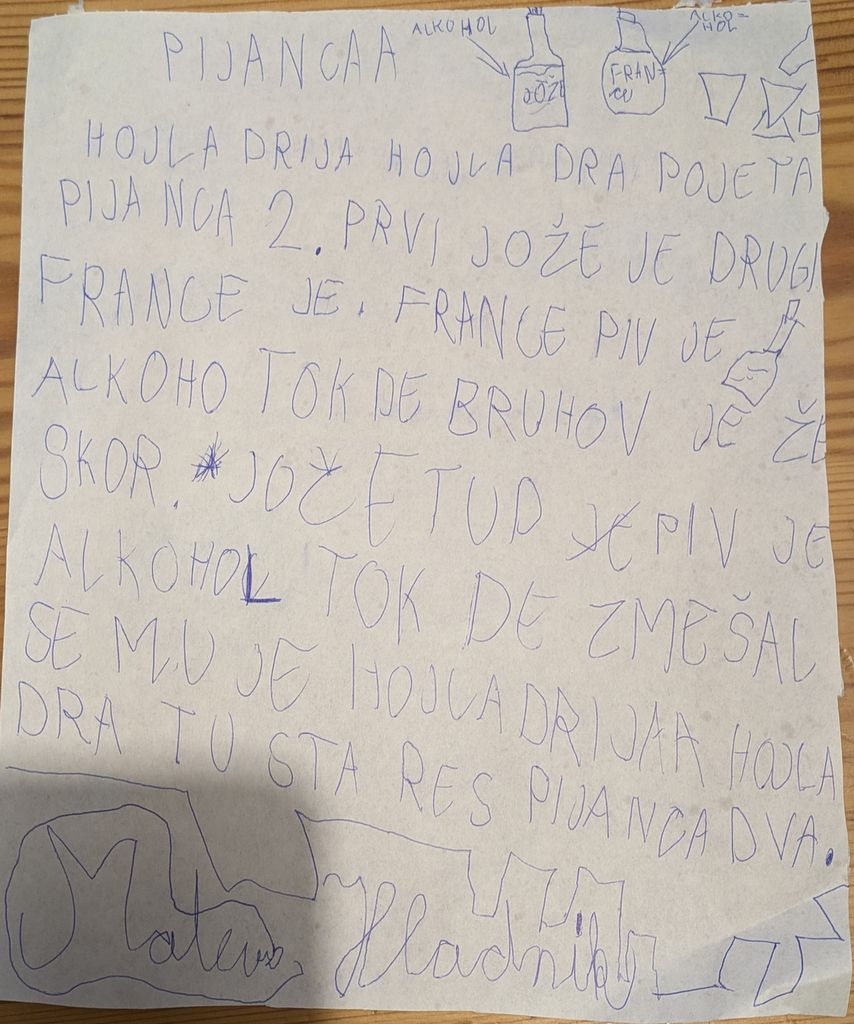 PIJANCAA
ALKOHOL
ALKO=
HOL
JOŽE
FRAN=
CE
HOJLA DRIJA HOJLA DRA POJETA
PIJANCA 2. PRVI JOŽE JE DRUGI
FRANCE JE. FRANCE PIV JE
ALKOHO TOK DE BRUHOV JE ŽE
SKOR. *JOŽE TUD JE PIV JE
ALKOHOL TOK DE ZMEŠAL
SE MU JE HOJLA DRIJAA HOJLA
DRA TU STA RES PIJANCA DVA.
Matevž Hladnik